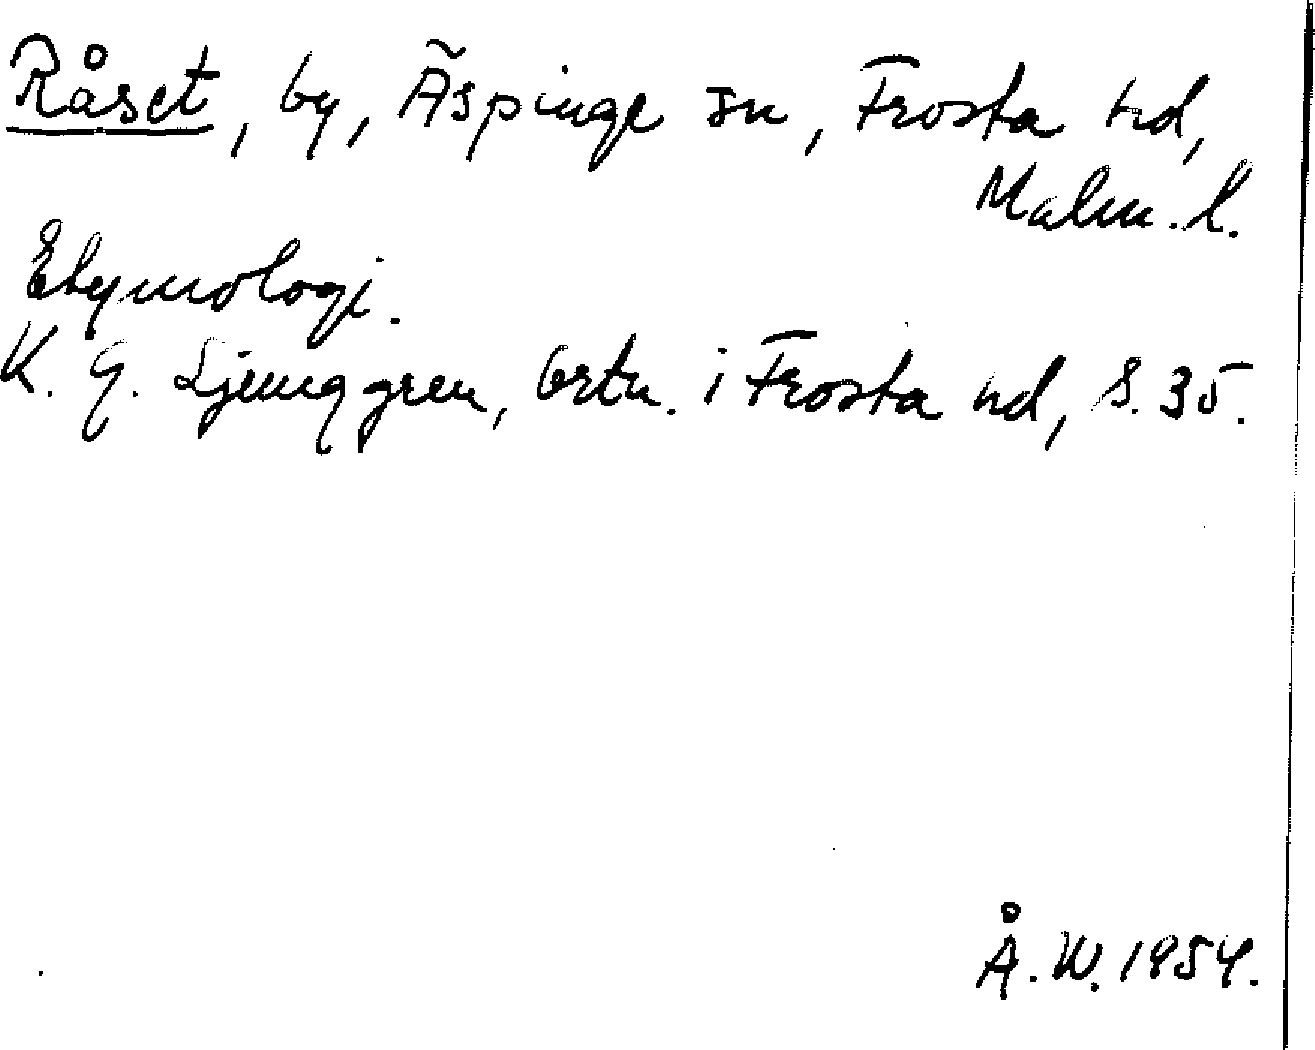 Råset, by, Äspinge sn, Frosta hd,
Malm. l.
Etymologi.
K. G. Ljunggren, Ortn. i Frosta hd, S. 35.
Å. W. 1954.